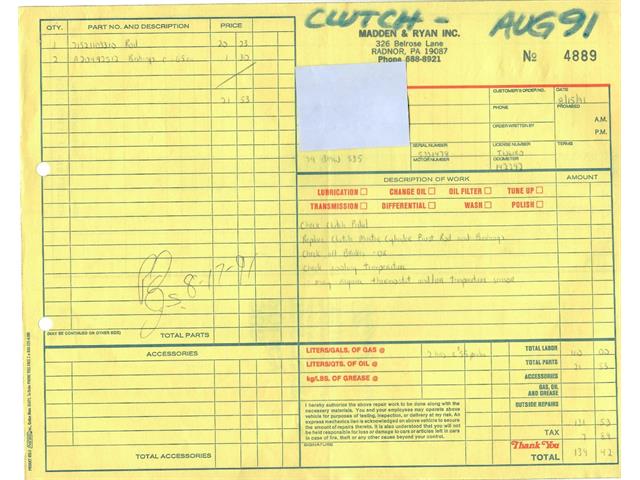 CLUTCH - AUG 91
MADDEN & RYAN INC.
326 Belrose Lane
RADNOR, PA 19087
Phone 688-8921
No 4889
QTY. PART NO. AND DESCRIPTION PRICE
1 Rod 20 23
2 Bushings 1 30
21 53
CUSTOMER'S ORDER NO. DATE
8/15/91
PHONE PROMISED
A.M.
ORDER WRITTEN BY
P.M.
SERIAL NUMBER LICENSE NUMBER TERMS
79 BMW 535
MOTOR NUMBER ODOMETER
DESCRIPTION OF WORK AMOUNT
LUBRICATION CHANGE OIL OIL FILTER TUNE UP
TRANSMISSION DIFFERENTIAL WASH POLISH
Check Clutch Pedal
Replace Clutch Master Cylinder Rod and Bushings
Check all Brakes - OK
Check cooling Temperature
may require thermostat and/or temperature sensor
8-17-91
(MAY BE CONTINUED ON OTHER SIDE)
TOTAL PARTS
ACCESSORIES
TOTAL ACCESSORIES
LITERS/GALS. OF GAS @
LITERS/QTS. OF OIL @
kg/LBS. OF GREASE @
TOTAL LABOR 110 00
TOTAL PARTS 21 53
ACCESSORIES
GAS, OIL AND GREASE
OUTSIDE REPAIRS
I hereby authorize the above repair work to be done along with the
necessary materials. You and your employees may operate above
vehicle for purposes of testing, inspection, or delivery at my risk. An
express mechanics lien is acknowledged on above vehicle to secure
the amount of repairs thereto. It is also understood that you will not
be held responsible for loss or damage to cars or articles left in cars
in case of fire, theft or any other cause beyond your control.
SIGNATURE
131 53
TAX 7 89
Thank You
TOTAL 139 42